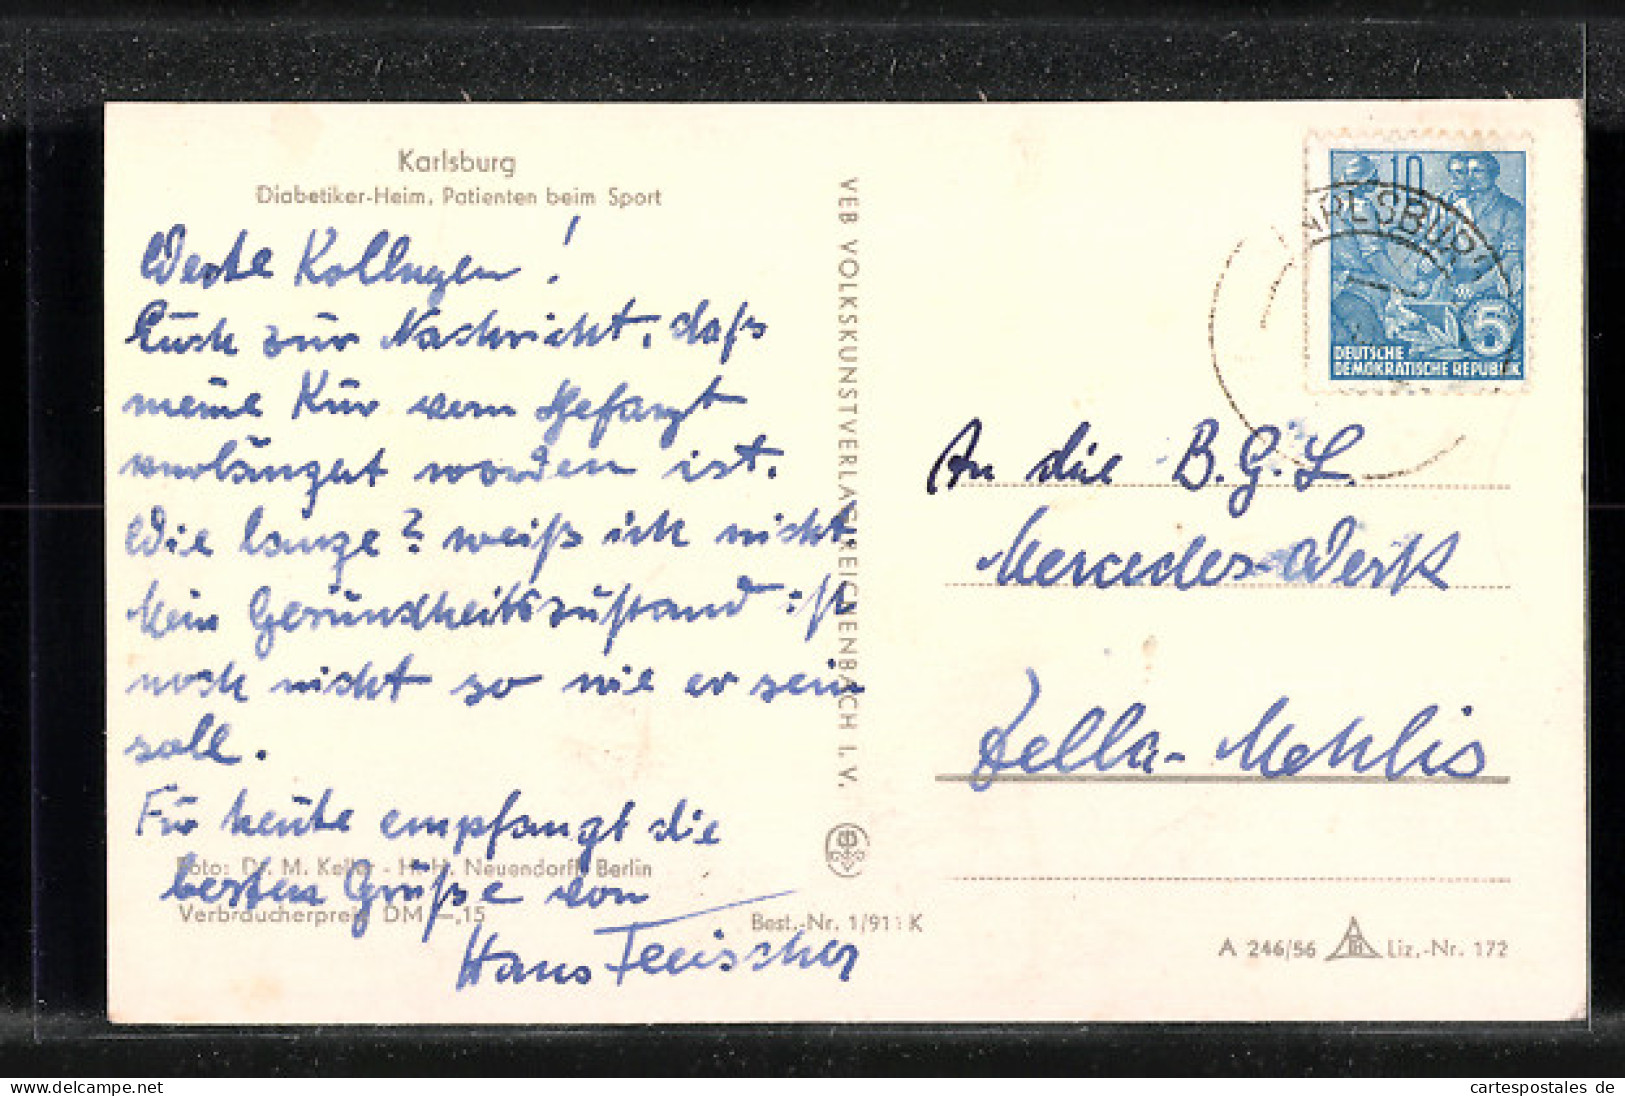 Karlsburg
Diabetiker-Heim, Patienten beim Sport
Werte Kollegen!
Euch zur Nachricht, daß
meine Kur vom Chefarzt
verlängert worden ist.
Wie lange? weiß ich nicht.
Mein Gesundheitszustand ist
noch nicht so wie er sein
soll.
Für heute empfangt die
besten Grüße von
Hans Fleischer
Foto: Dr. M. Keller - H. H. Neuendorff, Berlin
Verbraucherpreis DM -,15
Best.-Nr. 1/911 K
VEB VOLKSKUNSTVERLAG REICHENBACH I. V.
KARLSBURG
10
5
DEUTSCHE
DEMOKRATISCHE REPUBLIK
An die B.G.L.
Mercedes-Werk
Zella-Mehlis
A 246/56 Liz.-Nr. 172
www.cartespostales.de
cartespostales de